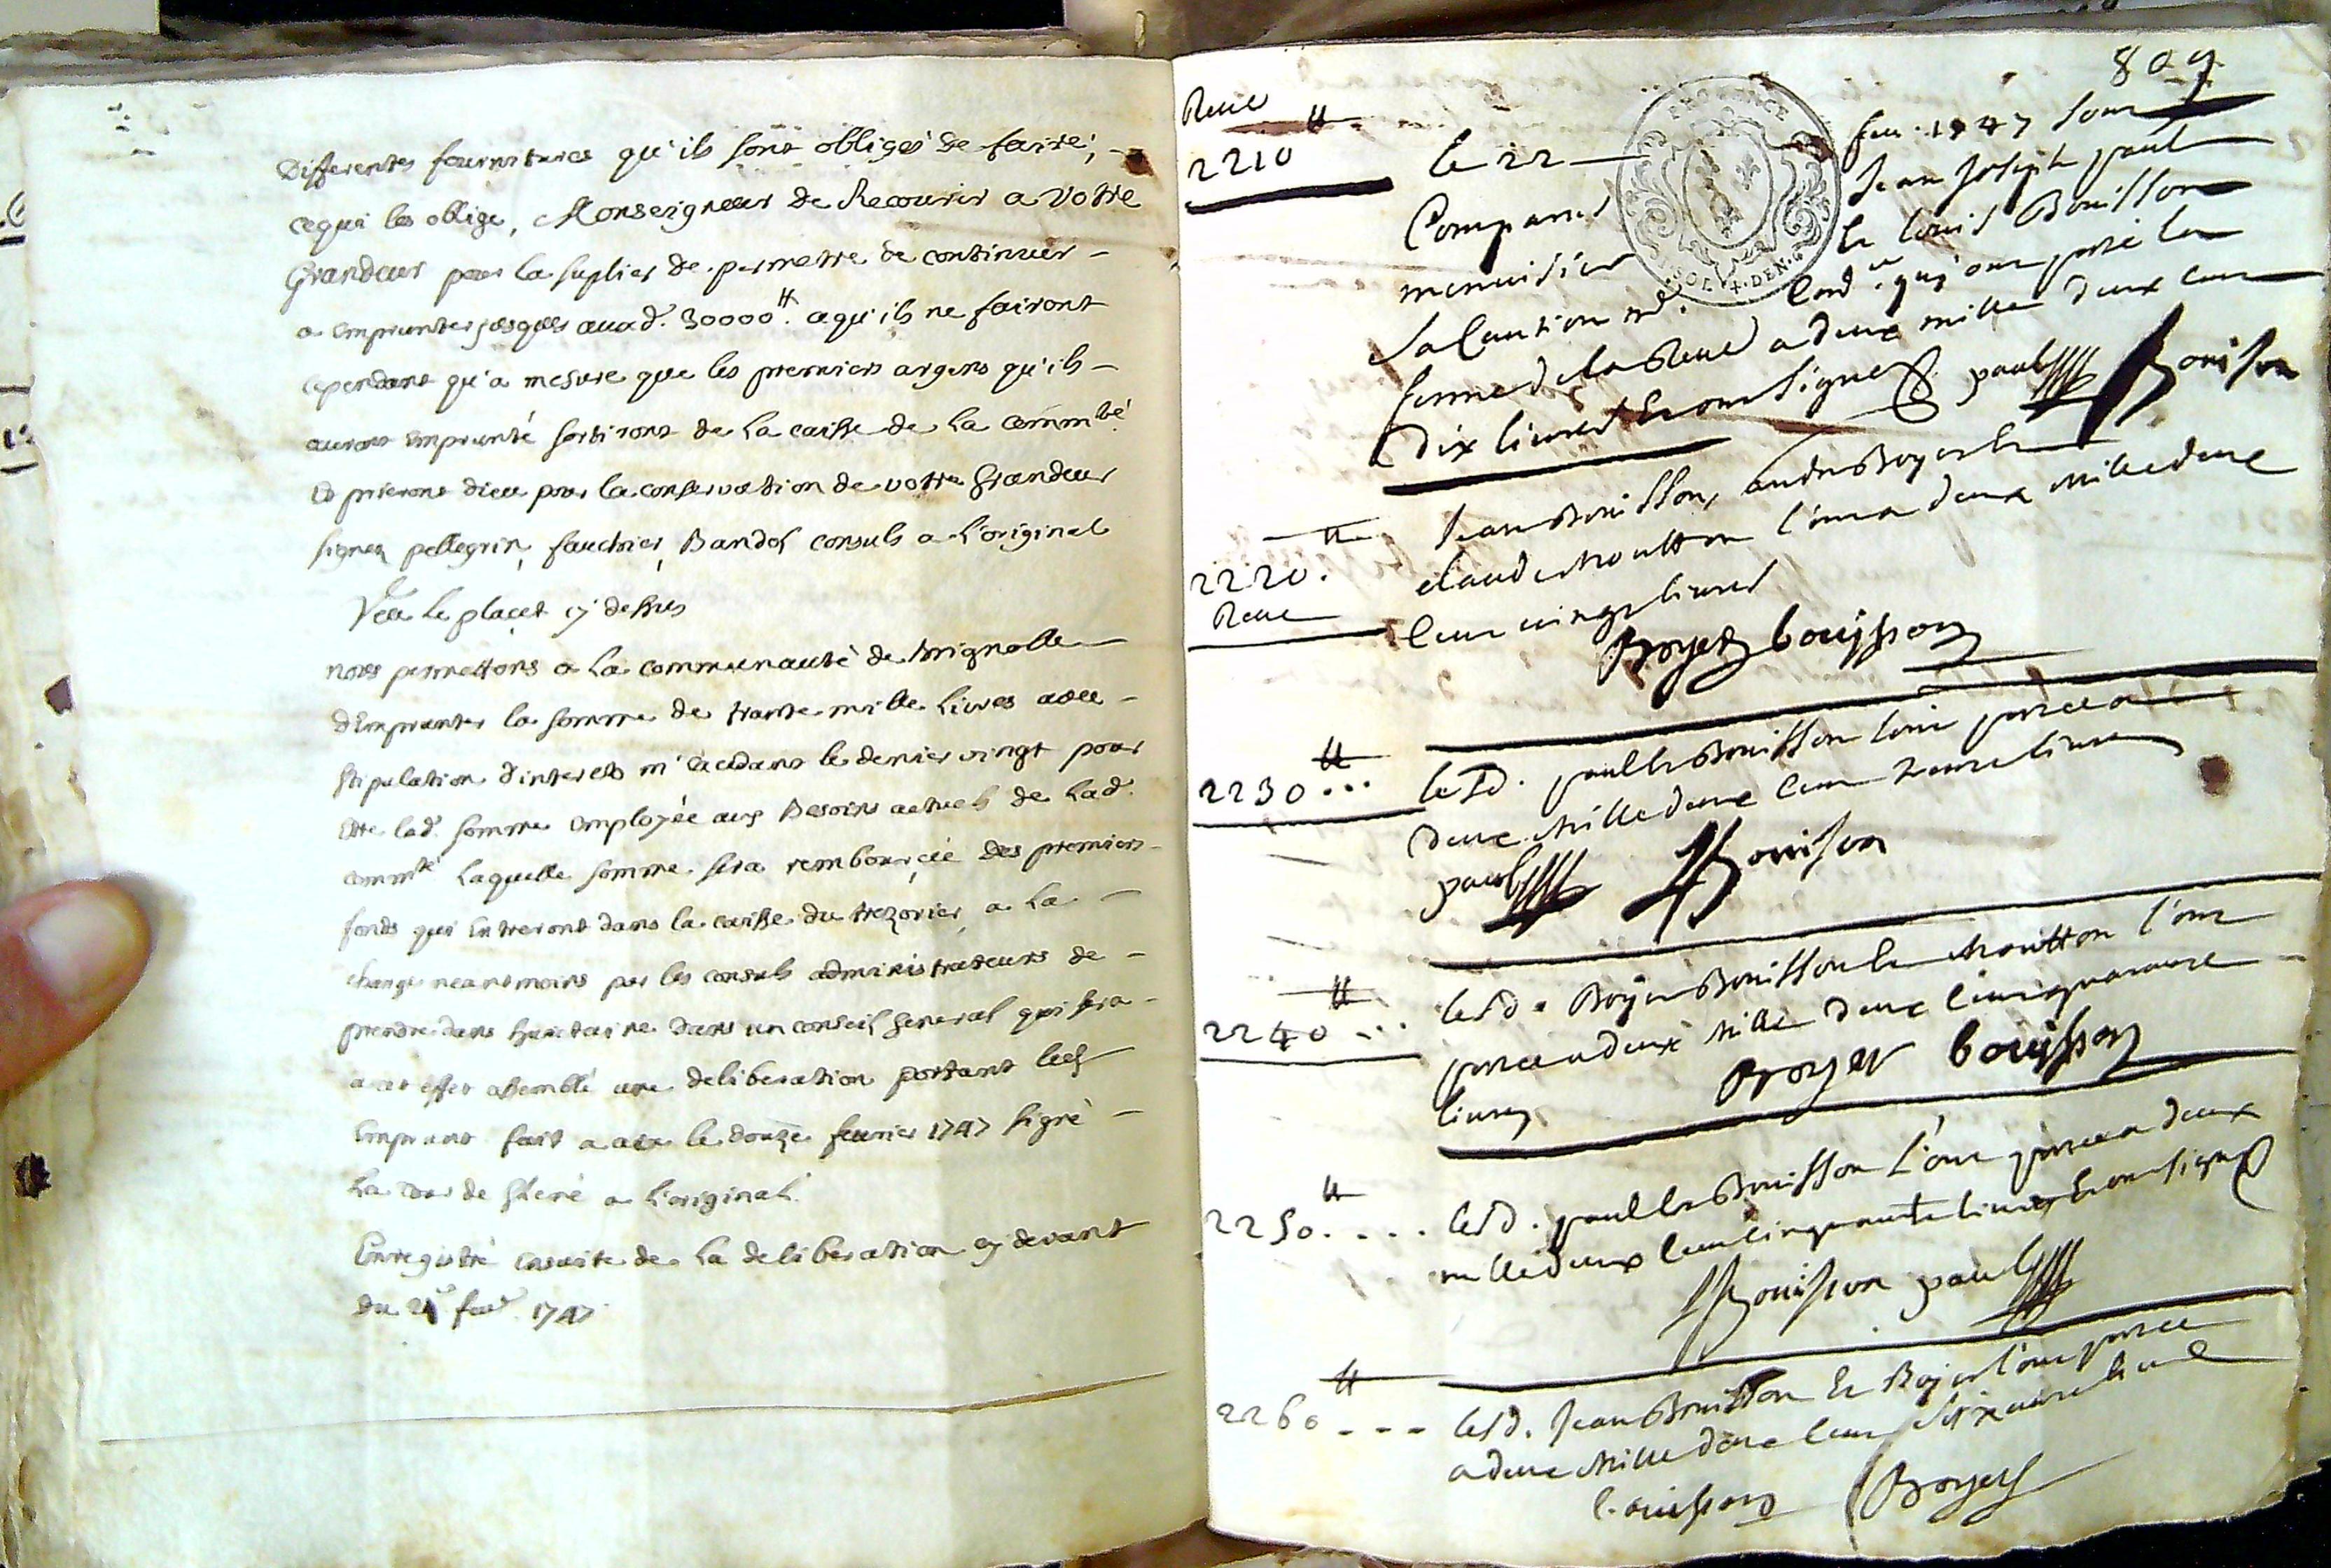 differentes fournitures qu'ils sont obligés de faire,
ce qui les oblige, Monseigneur de Recourir a votre
Grandeur pour la suplier de permetre de continuer
a emprunter jusques auxd. 30000ᵗᵗ. a qu'ils ne fairont
cependant qu'a mesure que les premiers argens qu'ils
auront emprunté sortiront de la caisse de la commté
Et prieront dieu pour la conservation de votre Grandeur
signes pellegrin, fauchier, Bandol consuls a L'original
Veu Le placet cy dessus
nous permettons a La communauté de Brignolle
d'Emprunter la somme de trante mille Livres avec
stipulation d'interets n'excedant le denier vingt pour
Etre lad. somme employée aux Besoins actuels de Lad.
commté Laquelle somme sera rembourcée des premiers
fonds qui Entreront dans la caisse du trezorier, a La
charge neantmoins par les consuls administrateurs de
prendre dans huictaine dans un conseil general qui sera
a cet effet assemblé une deliberation portant led.
Emprunt fait a aix le douze feurier 1747 signé
La tour de Glené a L'original.
Enregistré ensuite de La deliberation cy devant
du 21 feur. 1747
809
Reue
2210ᵗᵗ
Le 22 feu. 1747 sont
Comparus Jean Joseph paul
menuisier Et Louis Bouisson
sa Caution md. Cord.ʳ qui ont porté la
ferme de la Reue a deux mille deux cent
Dix livres Et ont signes paul Bouison
2220.ᵗᵗ
Reue
Jean Bouisson, andre Boyer Et
claude Moutton l'ont a deux Mille deux
Cent vingt livres
Boyer bouisson
2230ᵗᵗ...
Lesd. paul Et Bouisson l'ont portée a
deux Mille deux Cent trente livres
paul Bouison
2240ᵗᵗ...
Lesd. Boyer Bouisson Et Moutton l'ont
portée a deux Mille deux Cent quarante
livres Boyer bouisson
2250ᵗᵗ....
Lesd. paul Et Bouisson l'ont portée a deux
mille deux Cent cinquante livres Et ont signes
Bouison paul
2260ᵗᵗ---
Lesd. Jean Bouisson Et Boyer l'ont portée
a deux Mille deux Cent soixante livres
bouisson Boyer
PROVENCE
SOL 4. DEN.